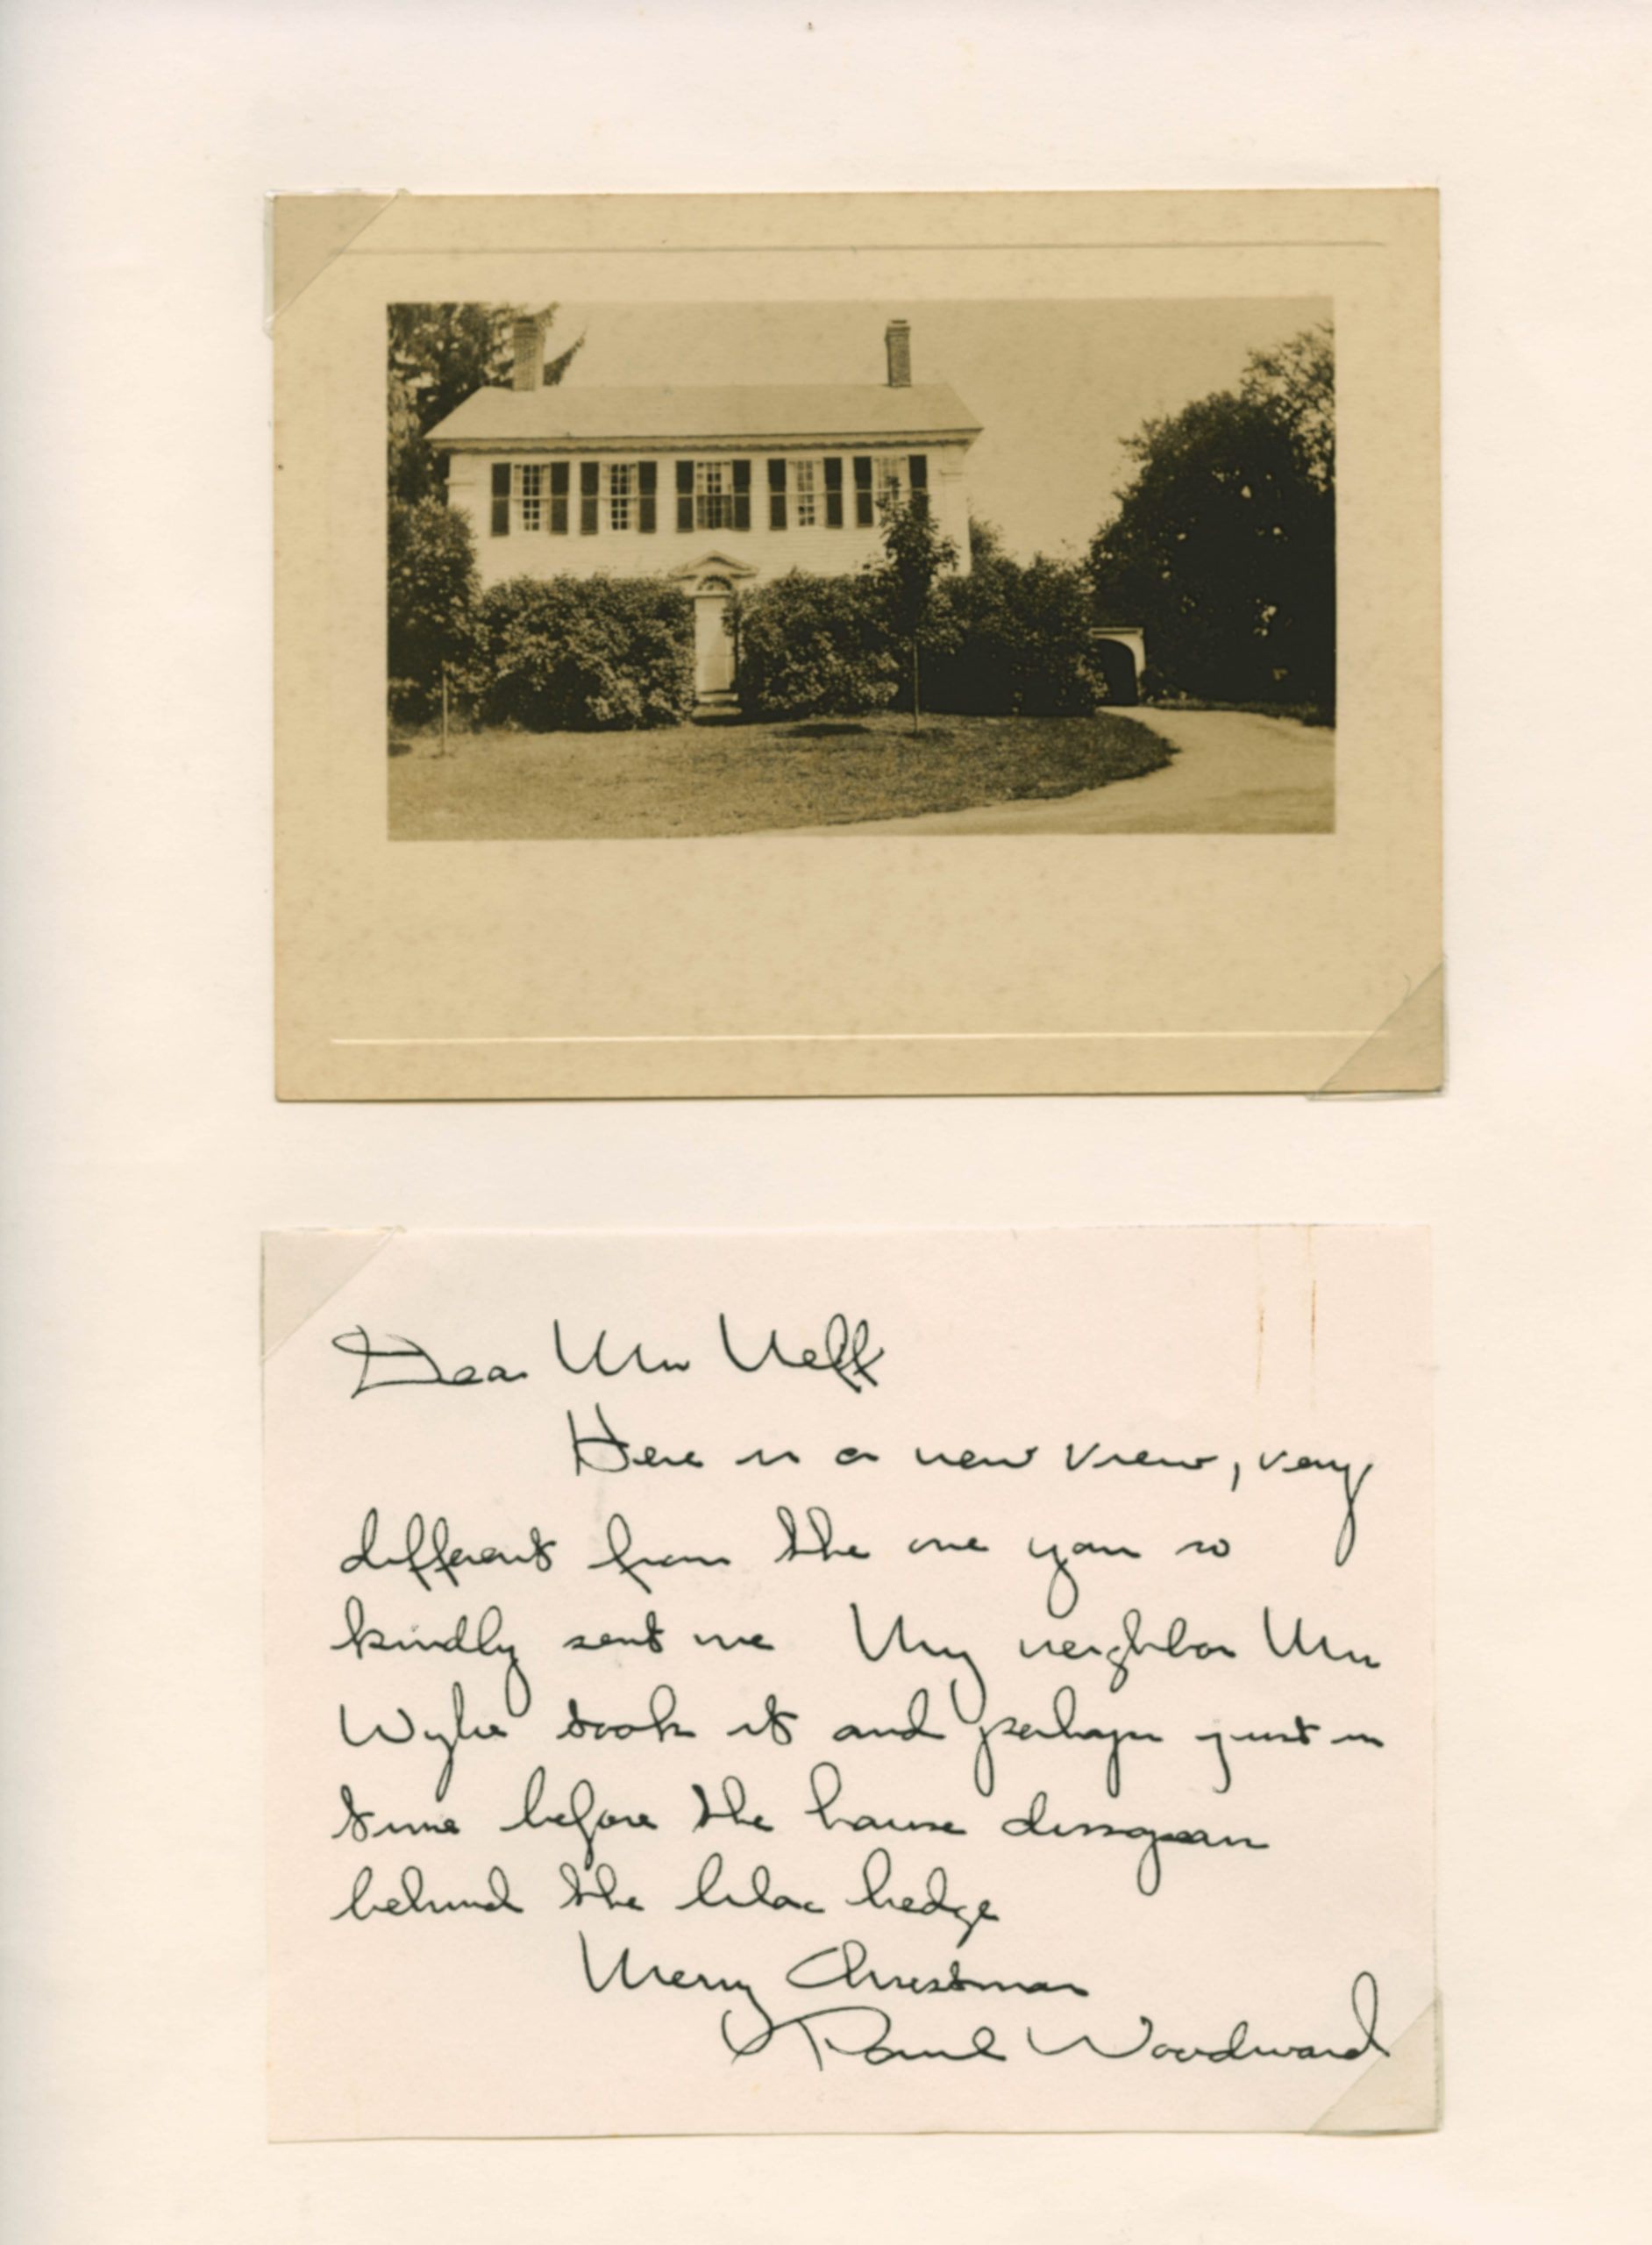 Dear Mr Neff
Here is a new view, very
different from the one you so
kindly sent me My neighbor Mr
Wylie took it and perhaps just in
time before the house disappears
behind the lilac hedge
Merry Christmas
Paul Woodward